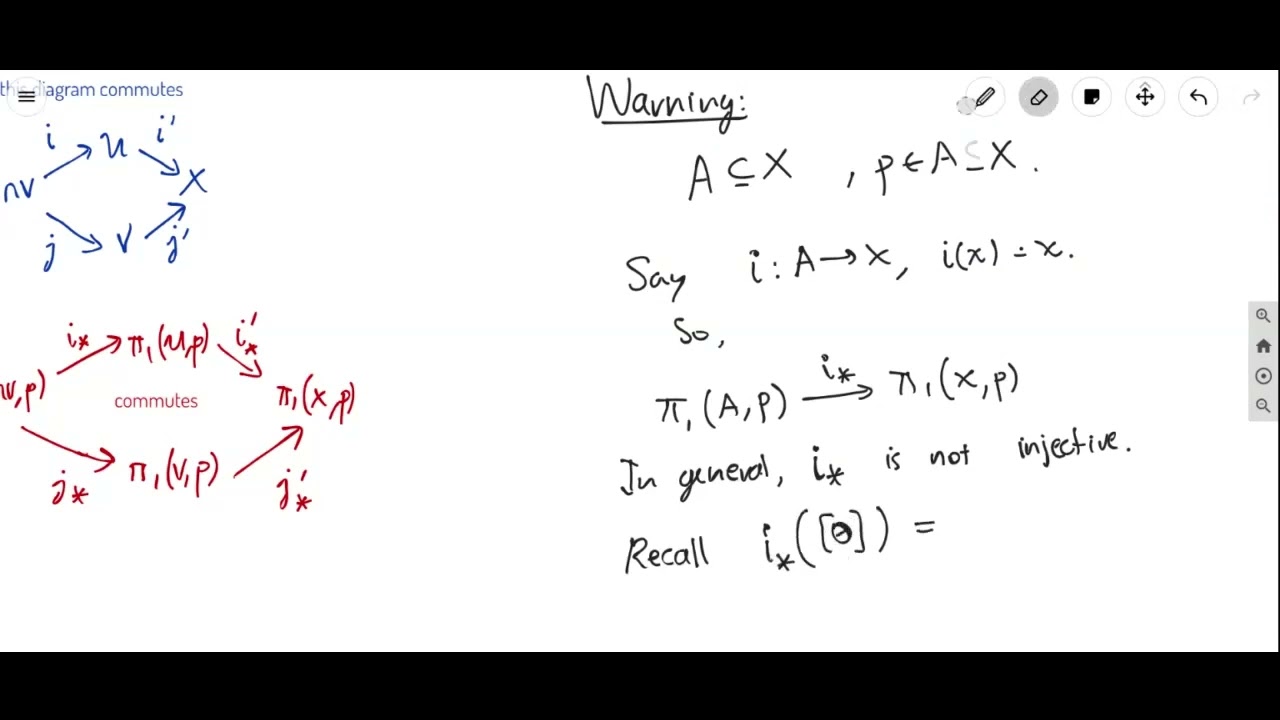 this diagram commutes
i i'
U
∩V X
j V j'
i* π₁(U,p) i'*
∩V,p) commutes π₁(X,p)
j* π₁(V,p) j'*
Warning:
A ⊆ X , p ∈ A ⊆ X .
Say i : A → X, i(x) = x.
So,
π₁(A,p) →^{i*} π₁(X,p)
In general, i* is not injective.
Recall i*([θ]) =